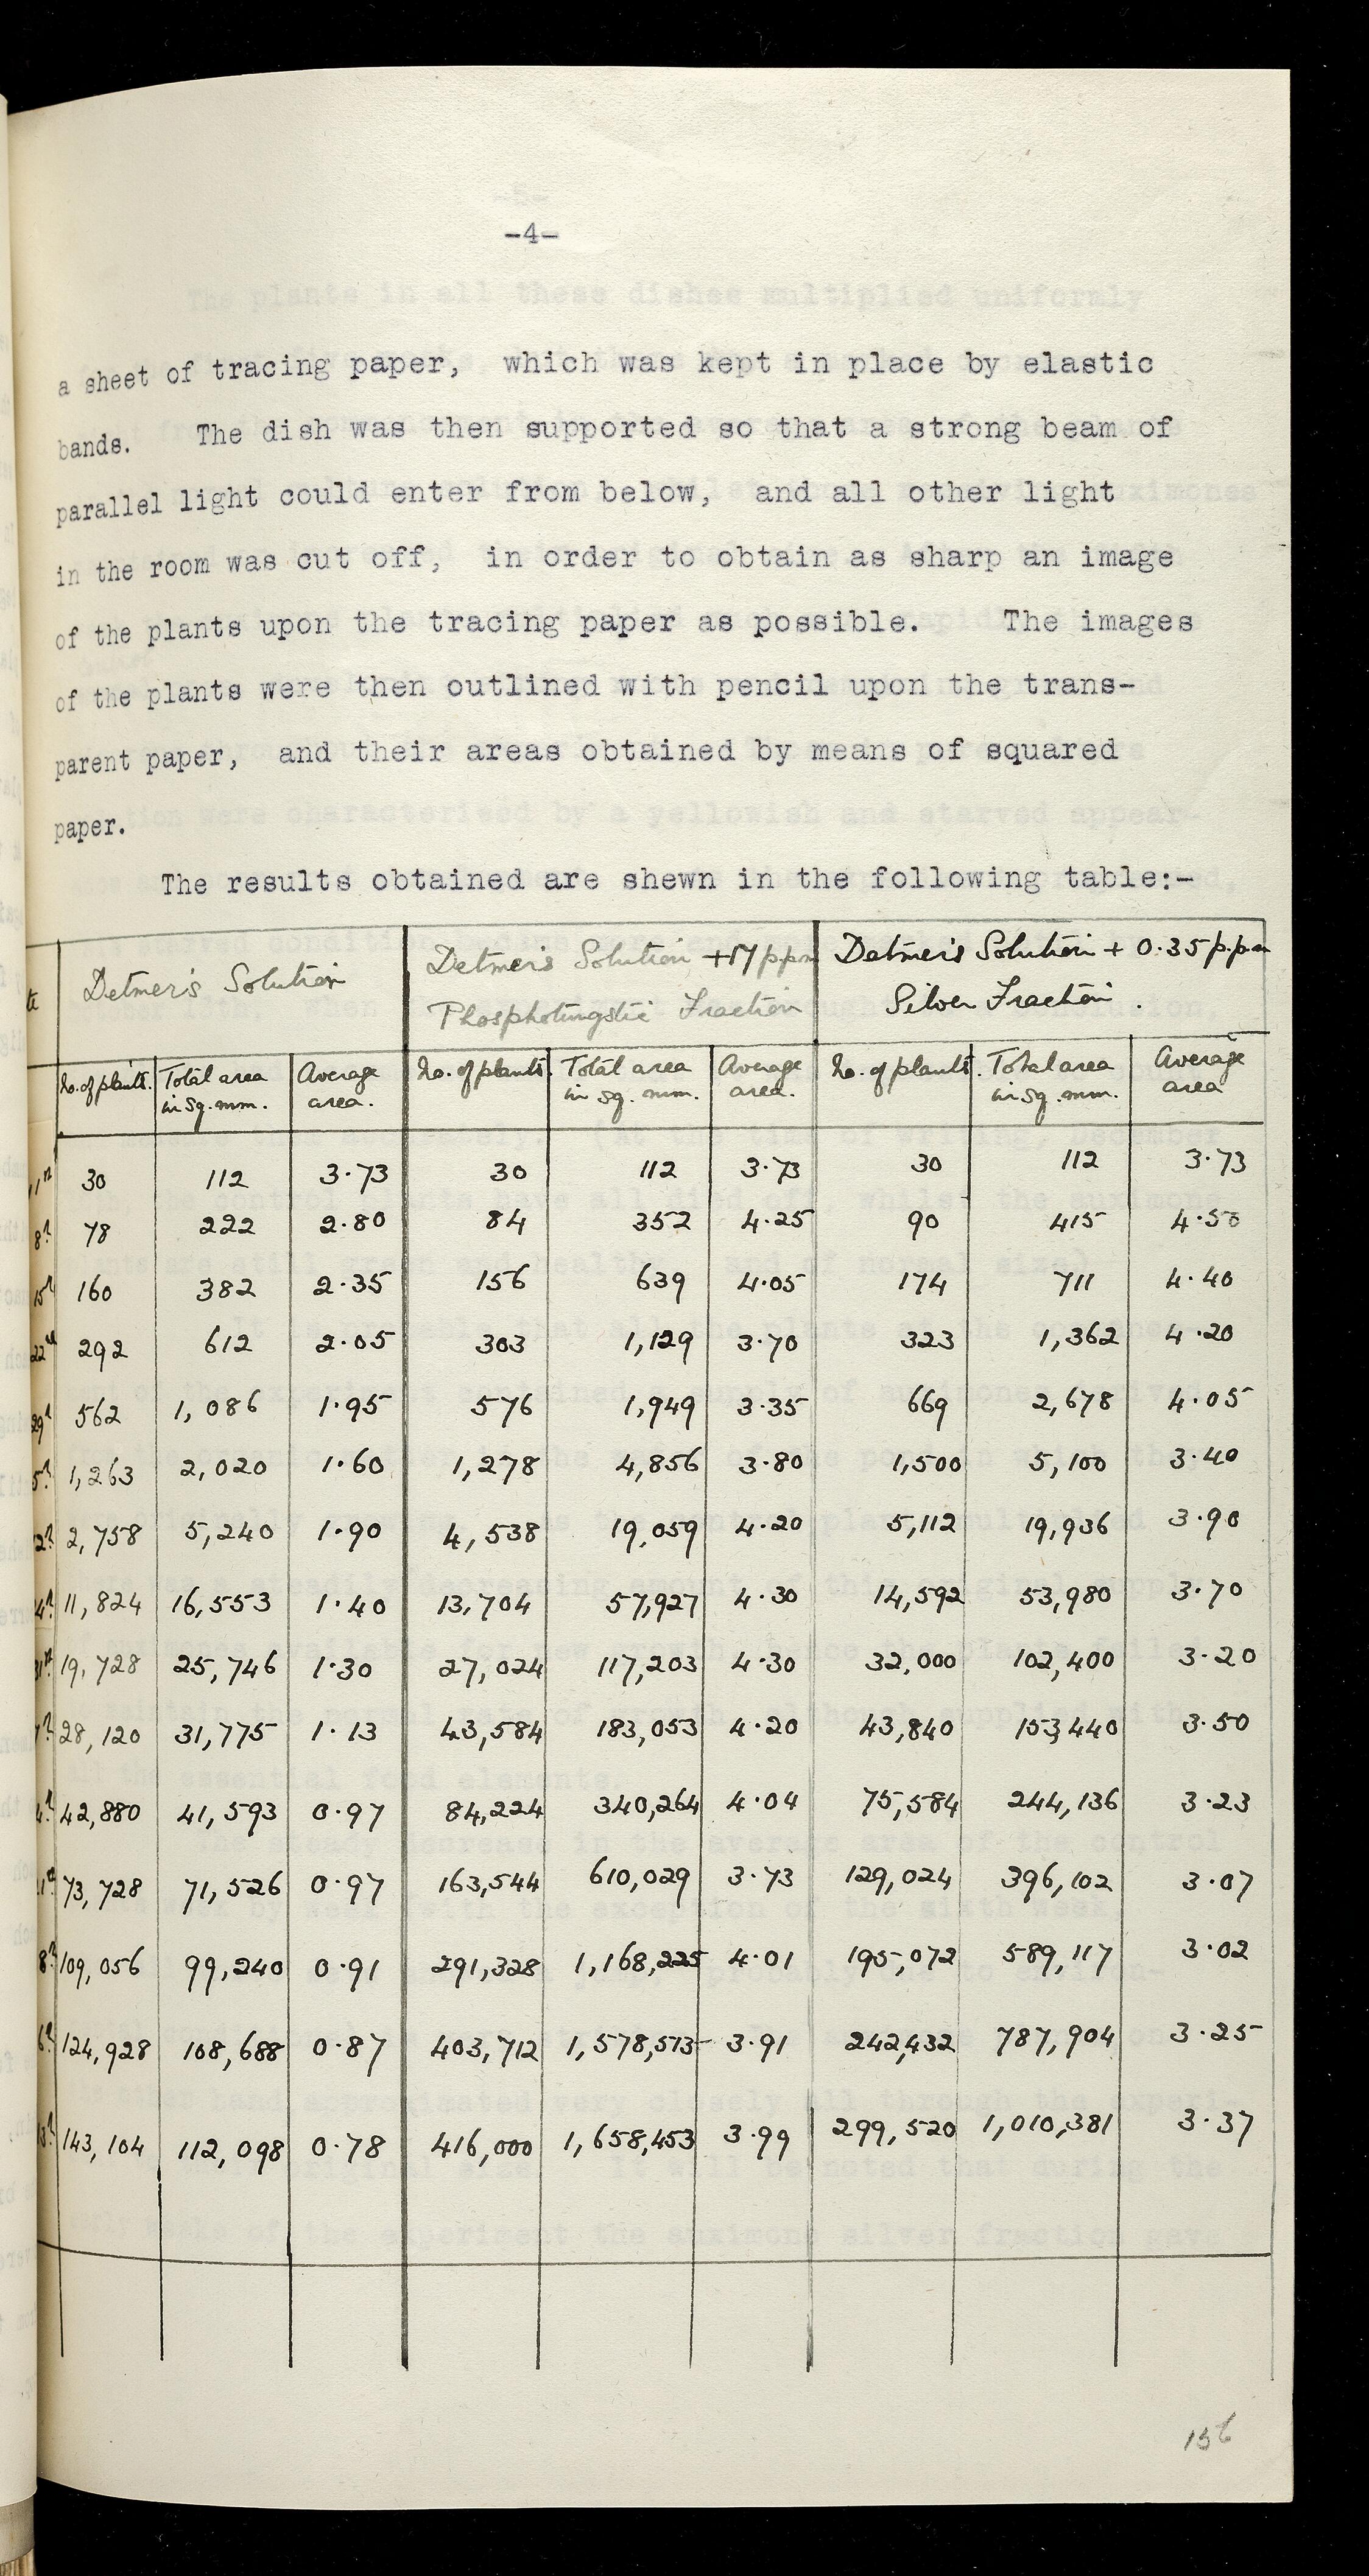 -4-
a sheet of tracing paper, which was kept in place by elastic
bands. The dish was then supported so that a strong beam of
parallel light could enter from below, and all other light
in the room was cut off, in order to obtain as sharp an image
of the plants upon the tracing paper as possible. The images
of the plants were then outlined with pencil upon the trans-
parent paper, and their areas obtained by means of squared
paper.
The results obtained are shewn in the following table:-
Detmer's Solution Detmer's Solution + 17 p.p.m Detmer's Solution + 0.35 p.p.m
Phosphotungstic Fraction Silver Fraction.
No. of plants. Total area in Sq. mm. Average area. No. of plants. Total area in Sq. mm. Average area. No. of plants. Total area in Sq. mm. Average area
30 112 3.73 30 112 3.73 30 112 3.73
78 222 2.80 84 352 4.25 90 415 4.50
160 382 2.35 156 639 4.05 174 711 4.40
292 612 2.05 303 1,129 3.70 323 1,362 4.20
562 1,086 1.95 576 1,949 3.35 669 2,678 4.05
1,263 2,020 1.60 1,278 4,856 3.80 1,500 5,100 3.40
2,758 5,240 1.90 4,538 19,059 4.20 5,112 19,936 3.90
11,824 16,553 1.40 13,704 57,927 4.30 14,592 53,980 3.70
19,728 25,746 1.30 27,024 117,203 4.30 32,000 102,400 3.20
28,120 31,775 1.13 43,584 183,053 4.20 43,840 153,440 3.50
42,880 41,593 0.97 84,224 340,264 4.04 75,584 244,136 3.23
73,728 71,526 0.97 163,544 610,029 3.73 129,024 396,102 3.07
109,056 99,240 0.91 291,328 1,168,225 4.01 195,072 589,117 3.02
124,928 108,688 0.87 403,712 1,578,513 3.91 242,432 787,904 3.25
143,104 112,098 0.78 416,000 1,658,453 3.99 299,520 1,010,381 3.37
156